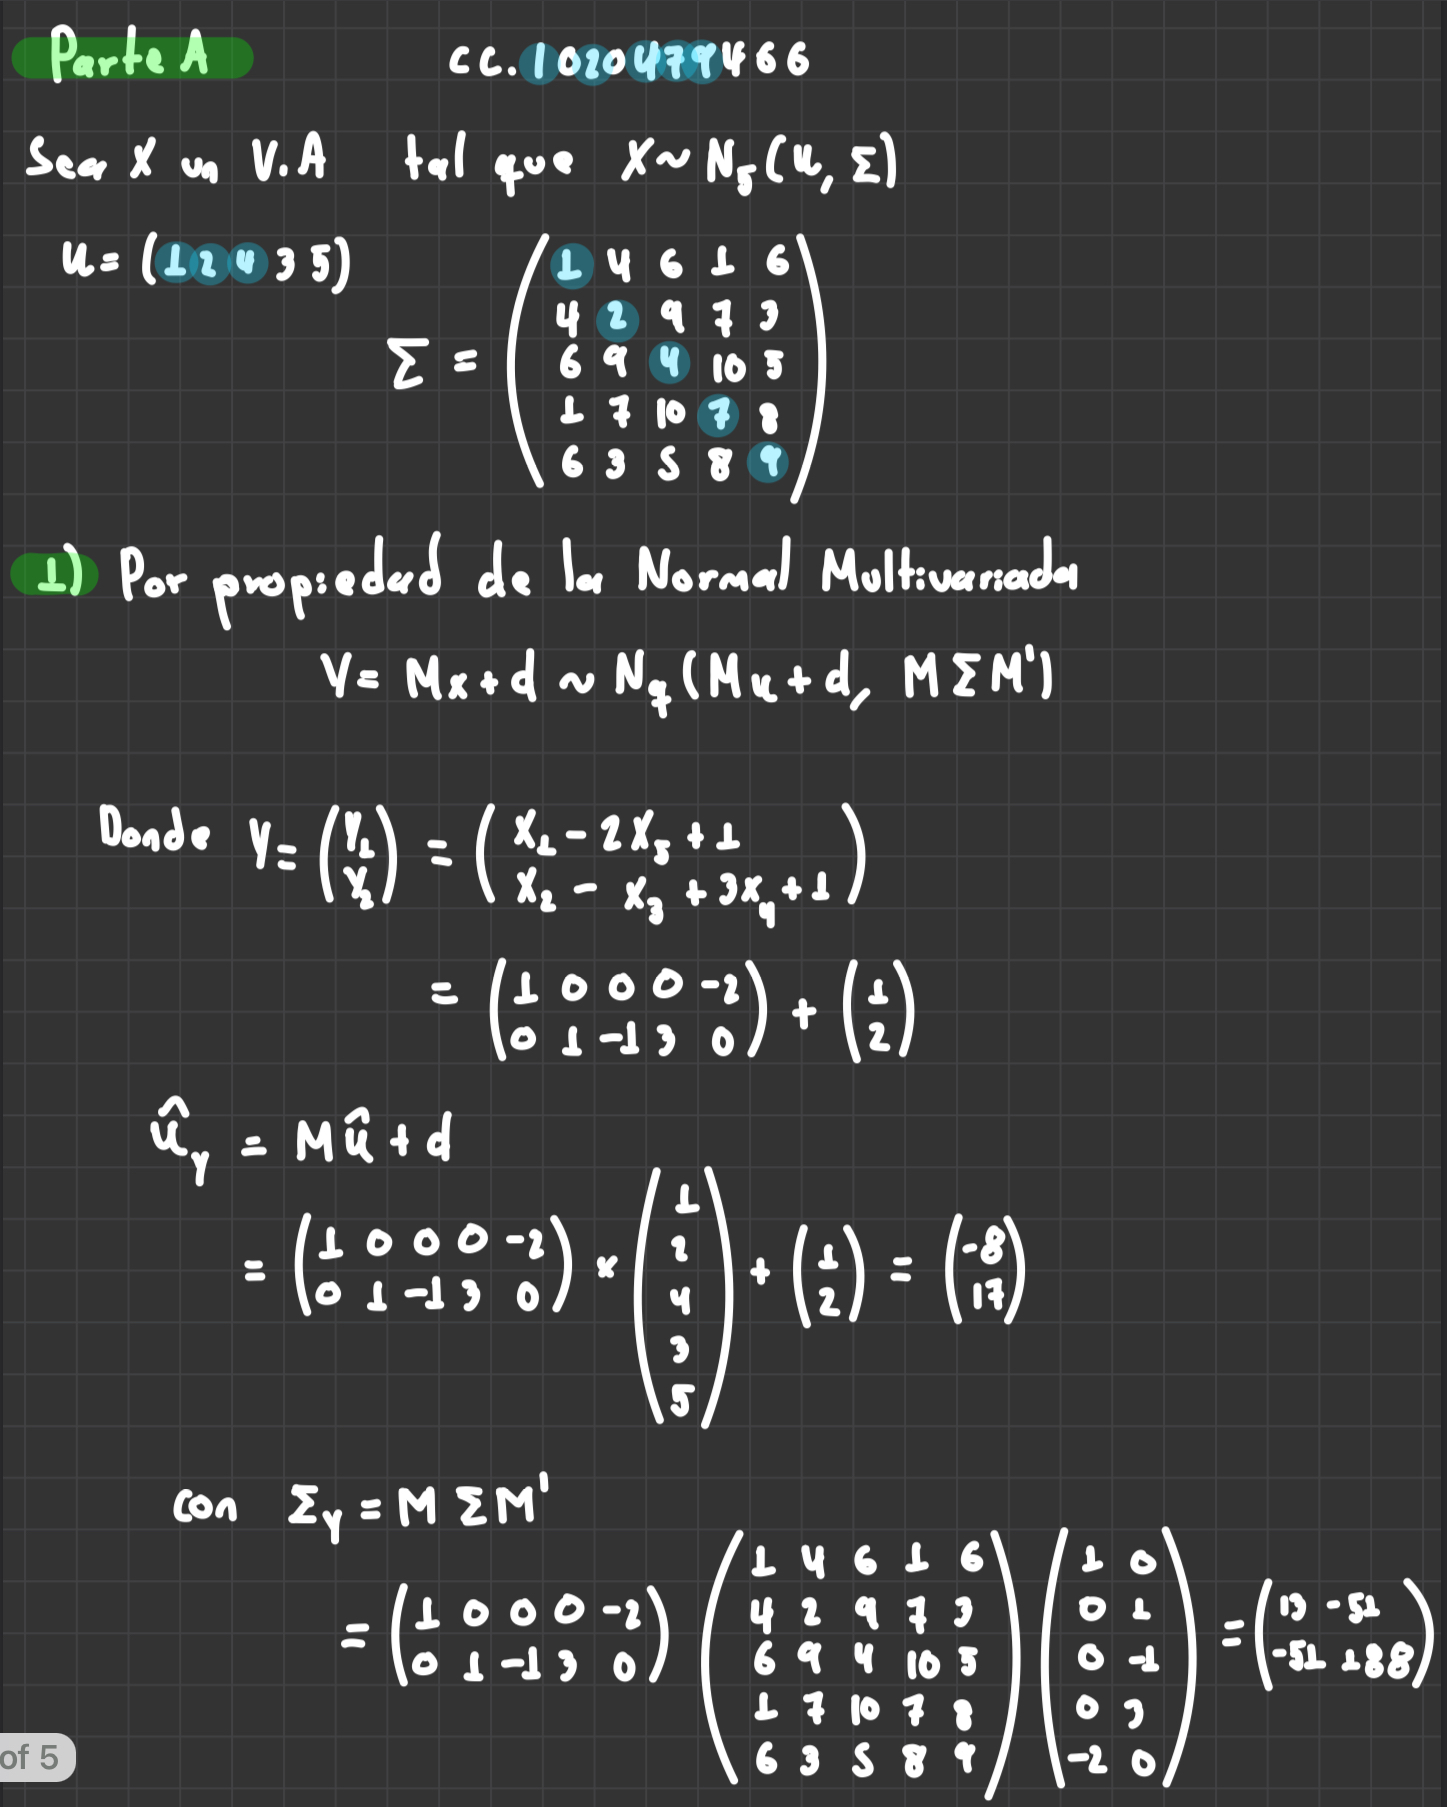 Parte A cc. 1020479466
Sea X un V.A tal que X ~ N₅(u, Σ)
u = (1 2 4 3 5)
Σ =
1 4 6 1 6
4 2 9 7 3
6 9 4 10 5
1 7 10 7 8
6 3 5 8 9
1) Por propiedad de la Normal Multivariada
Y = Mx + d ~ N_q (Mu + d, MΣM')
Donde Y = (Y₁ Y₂) = (X₁ - 2X₅ + 1
X₂ - X₃ + 3X₄ + 1)
= (1 0 0 0 -2
0 1 -1 3 0) + (1
2)
û_Y = Mû + d
= (1 0 0 0 -2
0 1 -1 3 0) × (1
2
4
3
5) + (1
2) = (-8
17)
con Σ_Y = MΣM'
= (1 0 0 0 -2
0 1 -1 3 0) (1 4 6 1 6
4 2 9 7 3
6 9 4 10 5
1 7 10 7 8
6 3 5 8 9) (1 0
0 1
0 -1
0 3
-2 0) = (13 -51
-51 188)
of 5